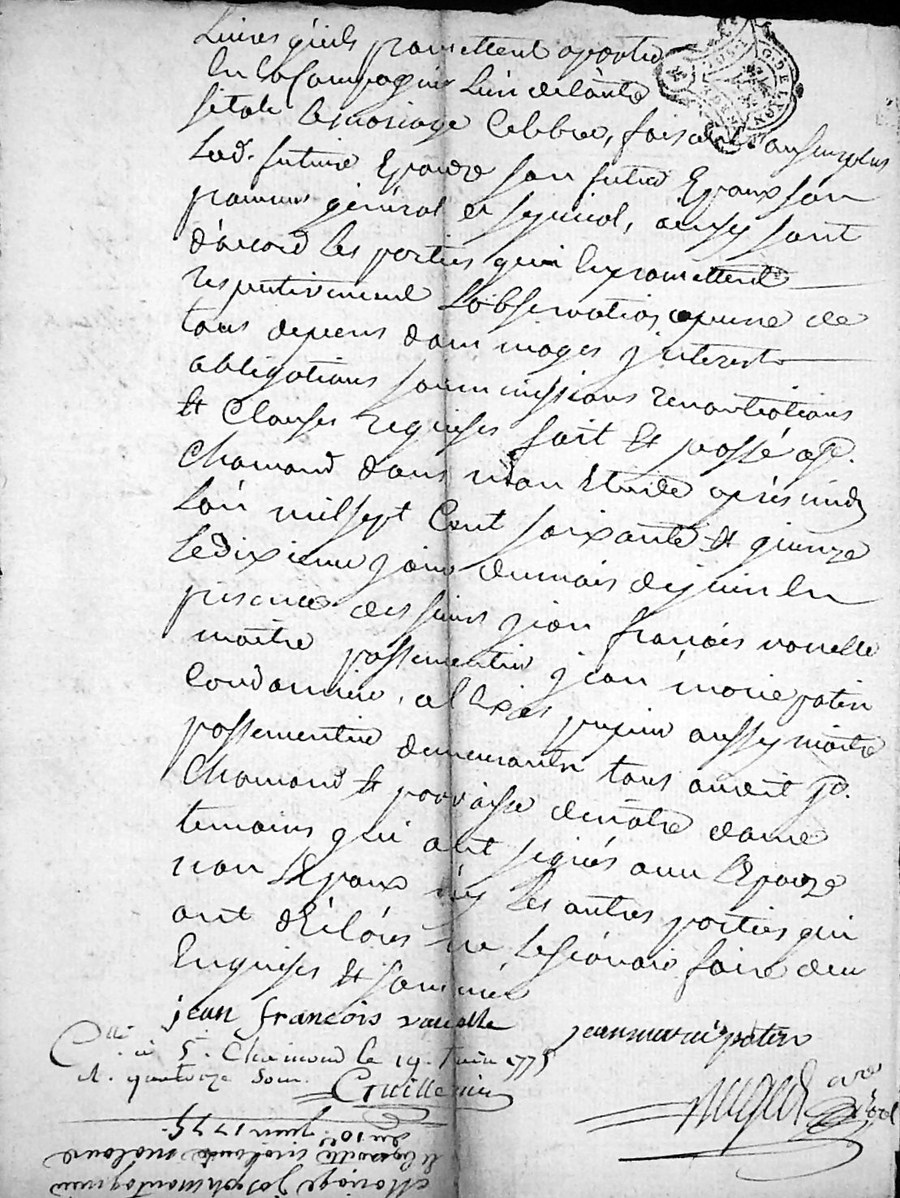 Livres qu'ils promettent aporter
En la Compagnie L'un de l'autre
sitot le mariage Celebré, faisant au surplus
Lad. future Epouze son futur Epoux son
procureur général et spécial, ainsy sont
d'acord les parties qui les promettent
respectivement L'observation a peine de
tous depens dommages interests
obligations soummissions renontiations
Et Clauses requises fait Et passé a St.
Chamond dans mon Etude après midy
L'an mil sept Cent soixante Et quinze
Le dixieme jour du mois de juin En
présence des sieurs jean françois
maitre passementier jean marie patin
Cordonnier, allexis aussy maitre
passementier demeurants tous audit St.
Chamond Et parroisse de notre dame
temoins qui ont signés avec l'Epouze
non l'Epoux ny les autres parties qui
ont déclarés ne le sçavoir faire de ce
Enquises Et sommés
jean francois
jean marie patin
Cllé à St. Chamond le 19. Juin 1775
R. quatorze sous.
Guillemin
du 10e. juin 1775.
Mariage
G. DE LYON